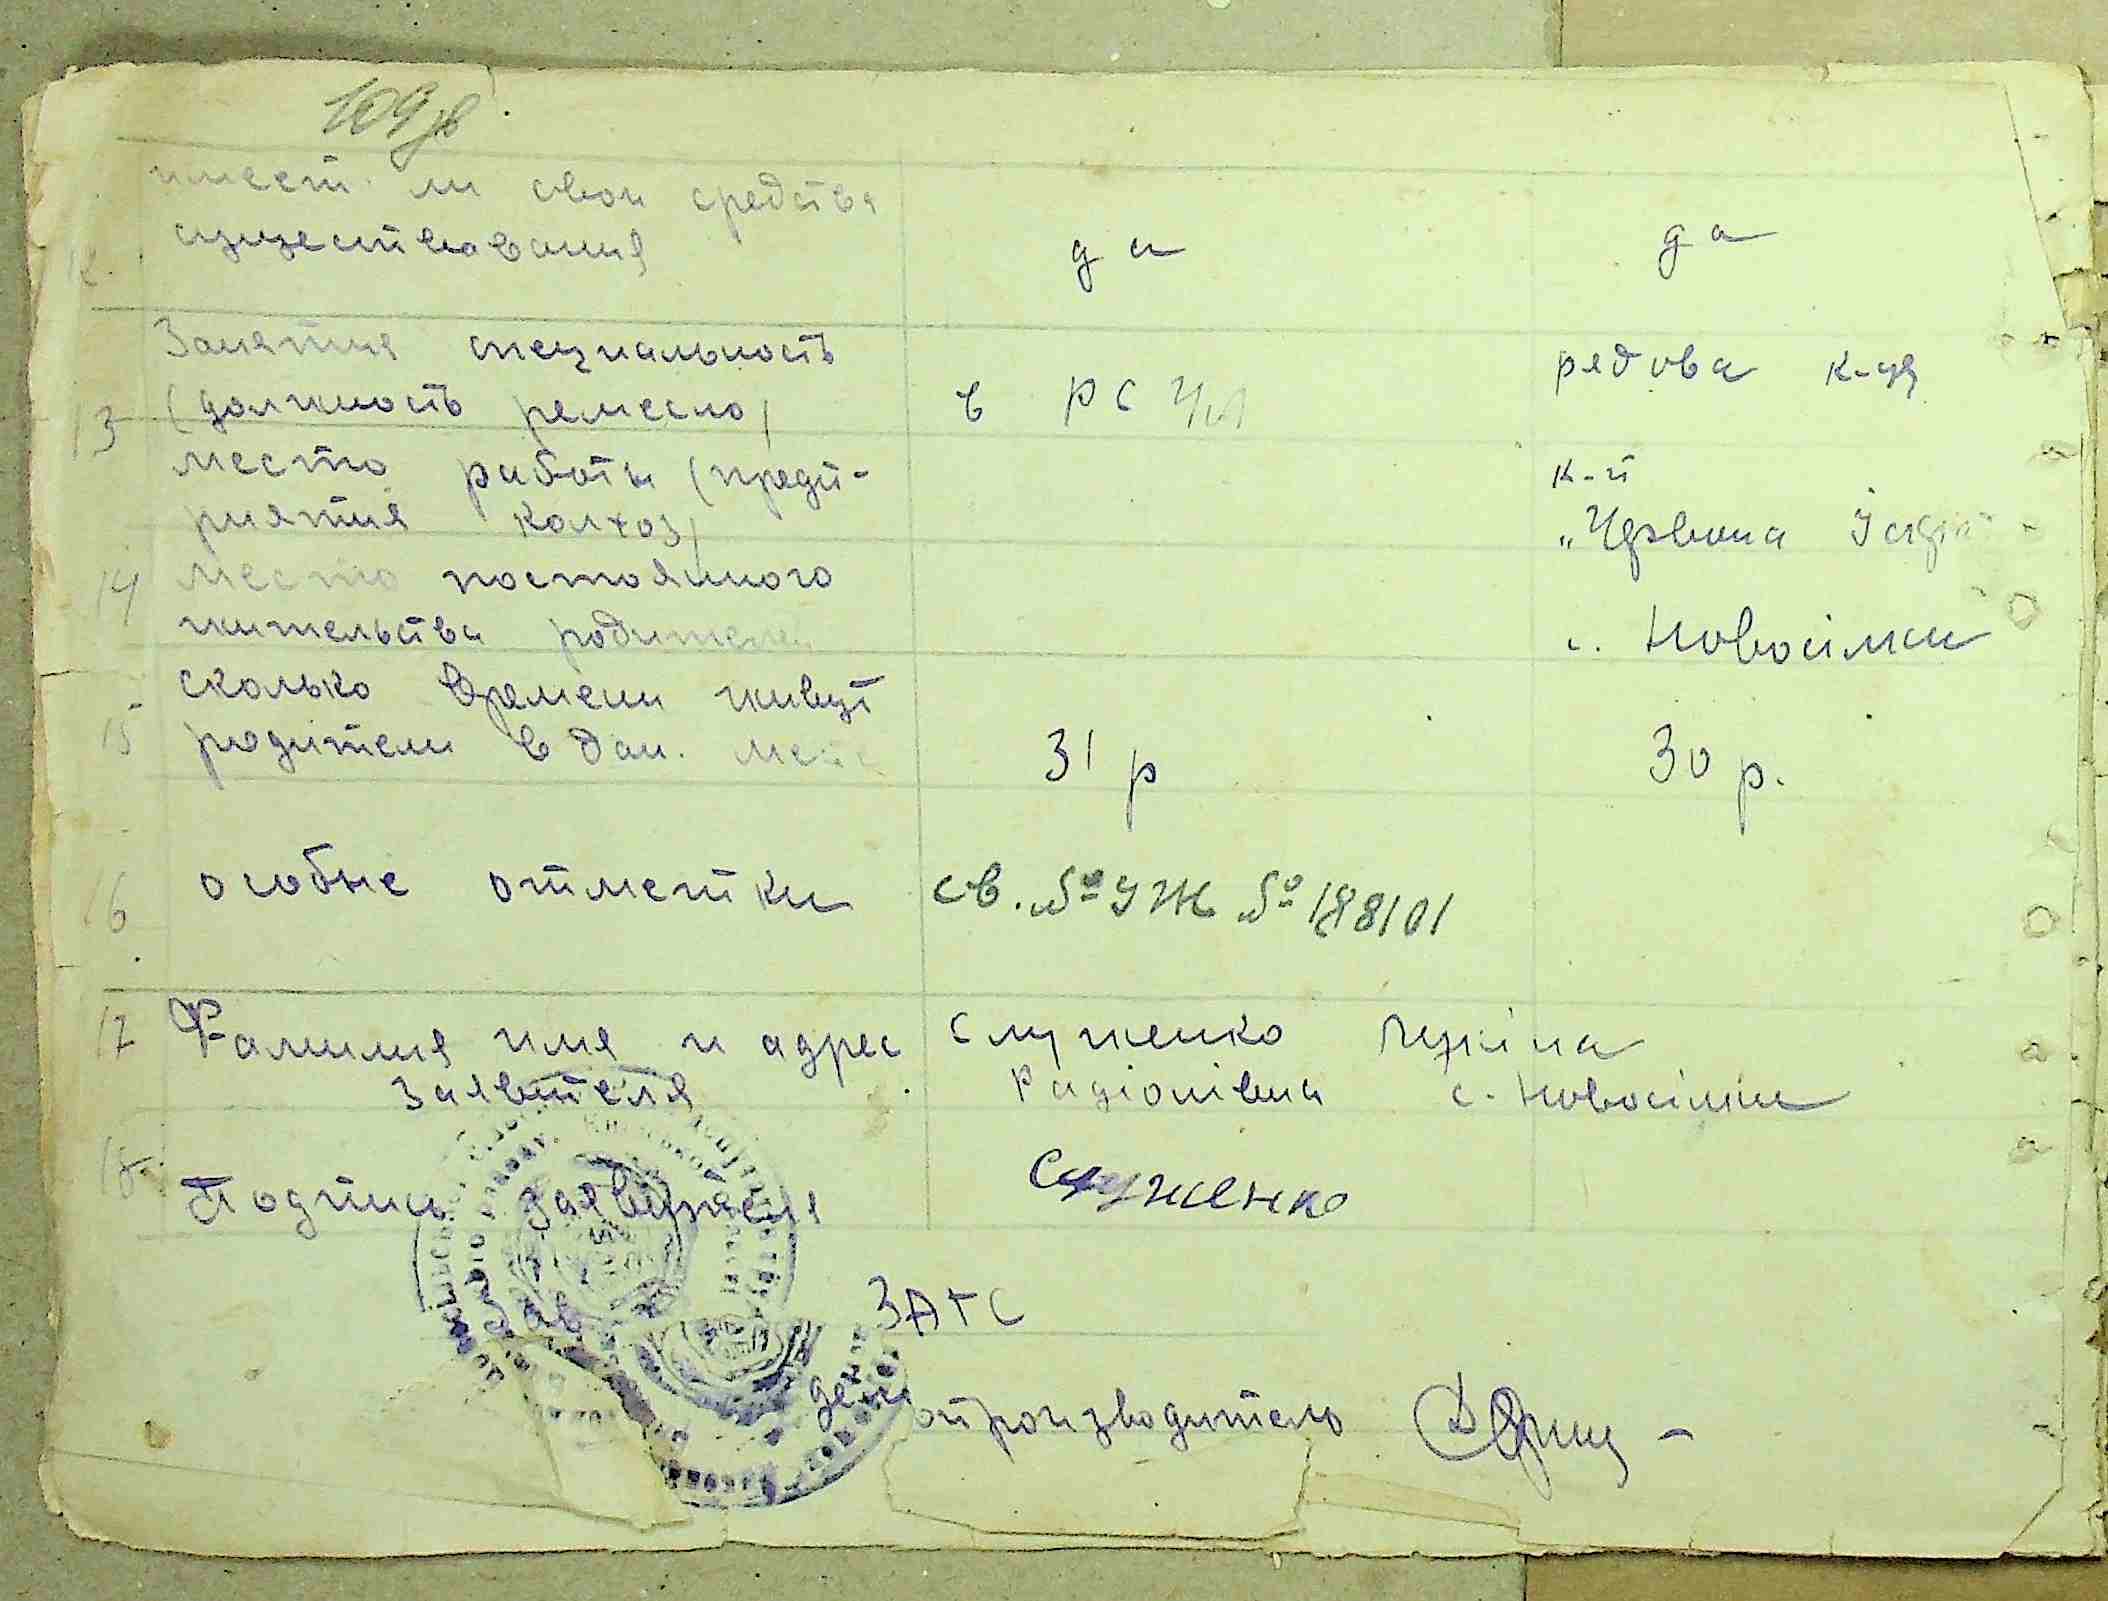 109 зв
имеет ли свои средства
существования да да
12.
Занятия специальность
(должность ремесло) в РСЧА рядова к-ця
13
место работы (предп- к-п
риятия колхоз) „Червона Іскра"
14 место постоянного
жительства родителей с. Новосілки
сколько времени живут
15 родители в дан. мест 31 р 30 р.
16 особые отметки св. № УЖ № 188101
17 Фамилия имя и адрес Служенко
заявителя Радіонівна с. Новосілки
18 Подпись заявителя Служенко
Зав ЗАГС
делопроизводитель